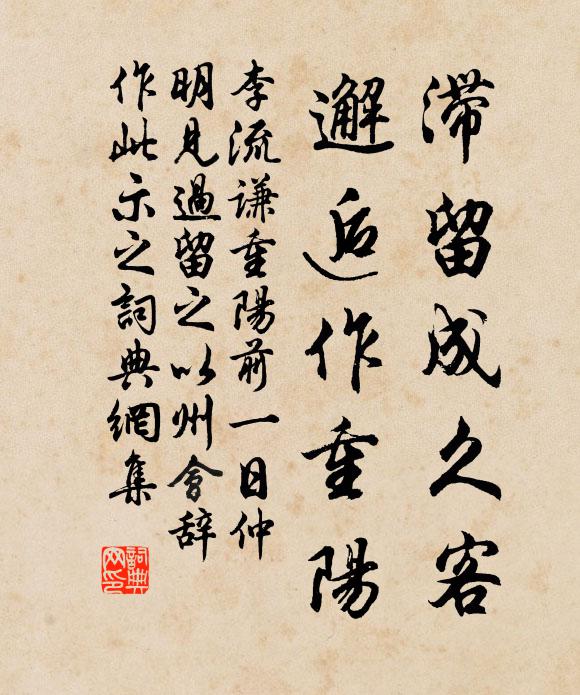 滯留成久客
邂逅作重陽
李流謙重陽前一日仲
明見過留之以州會辞
作此示之詞典網集
詞典
网印